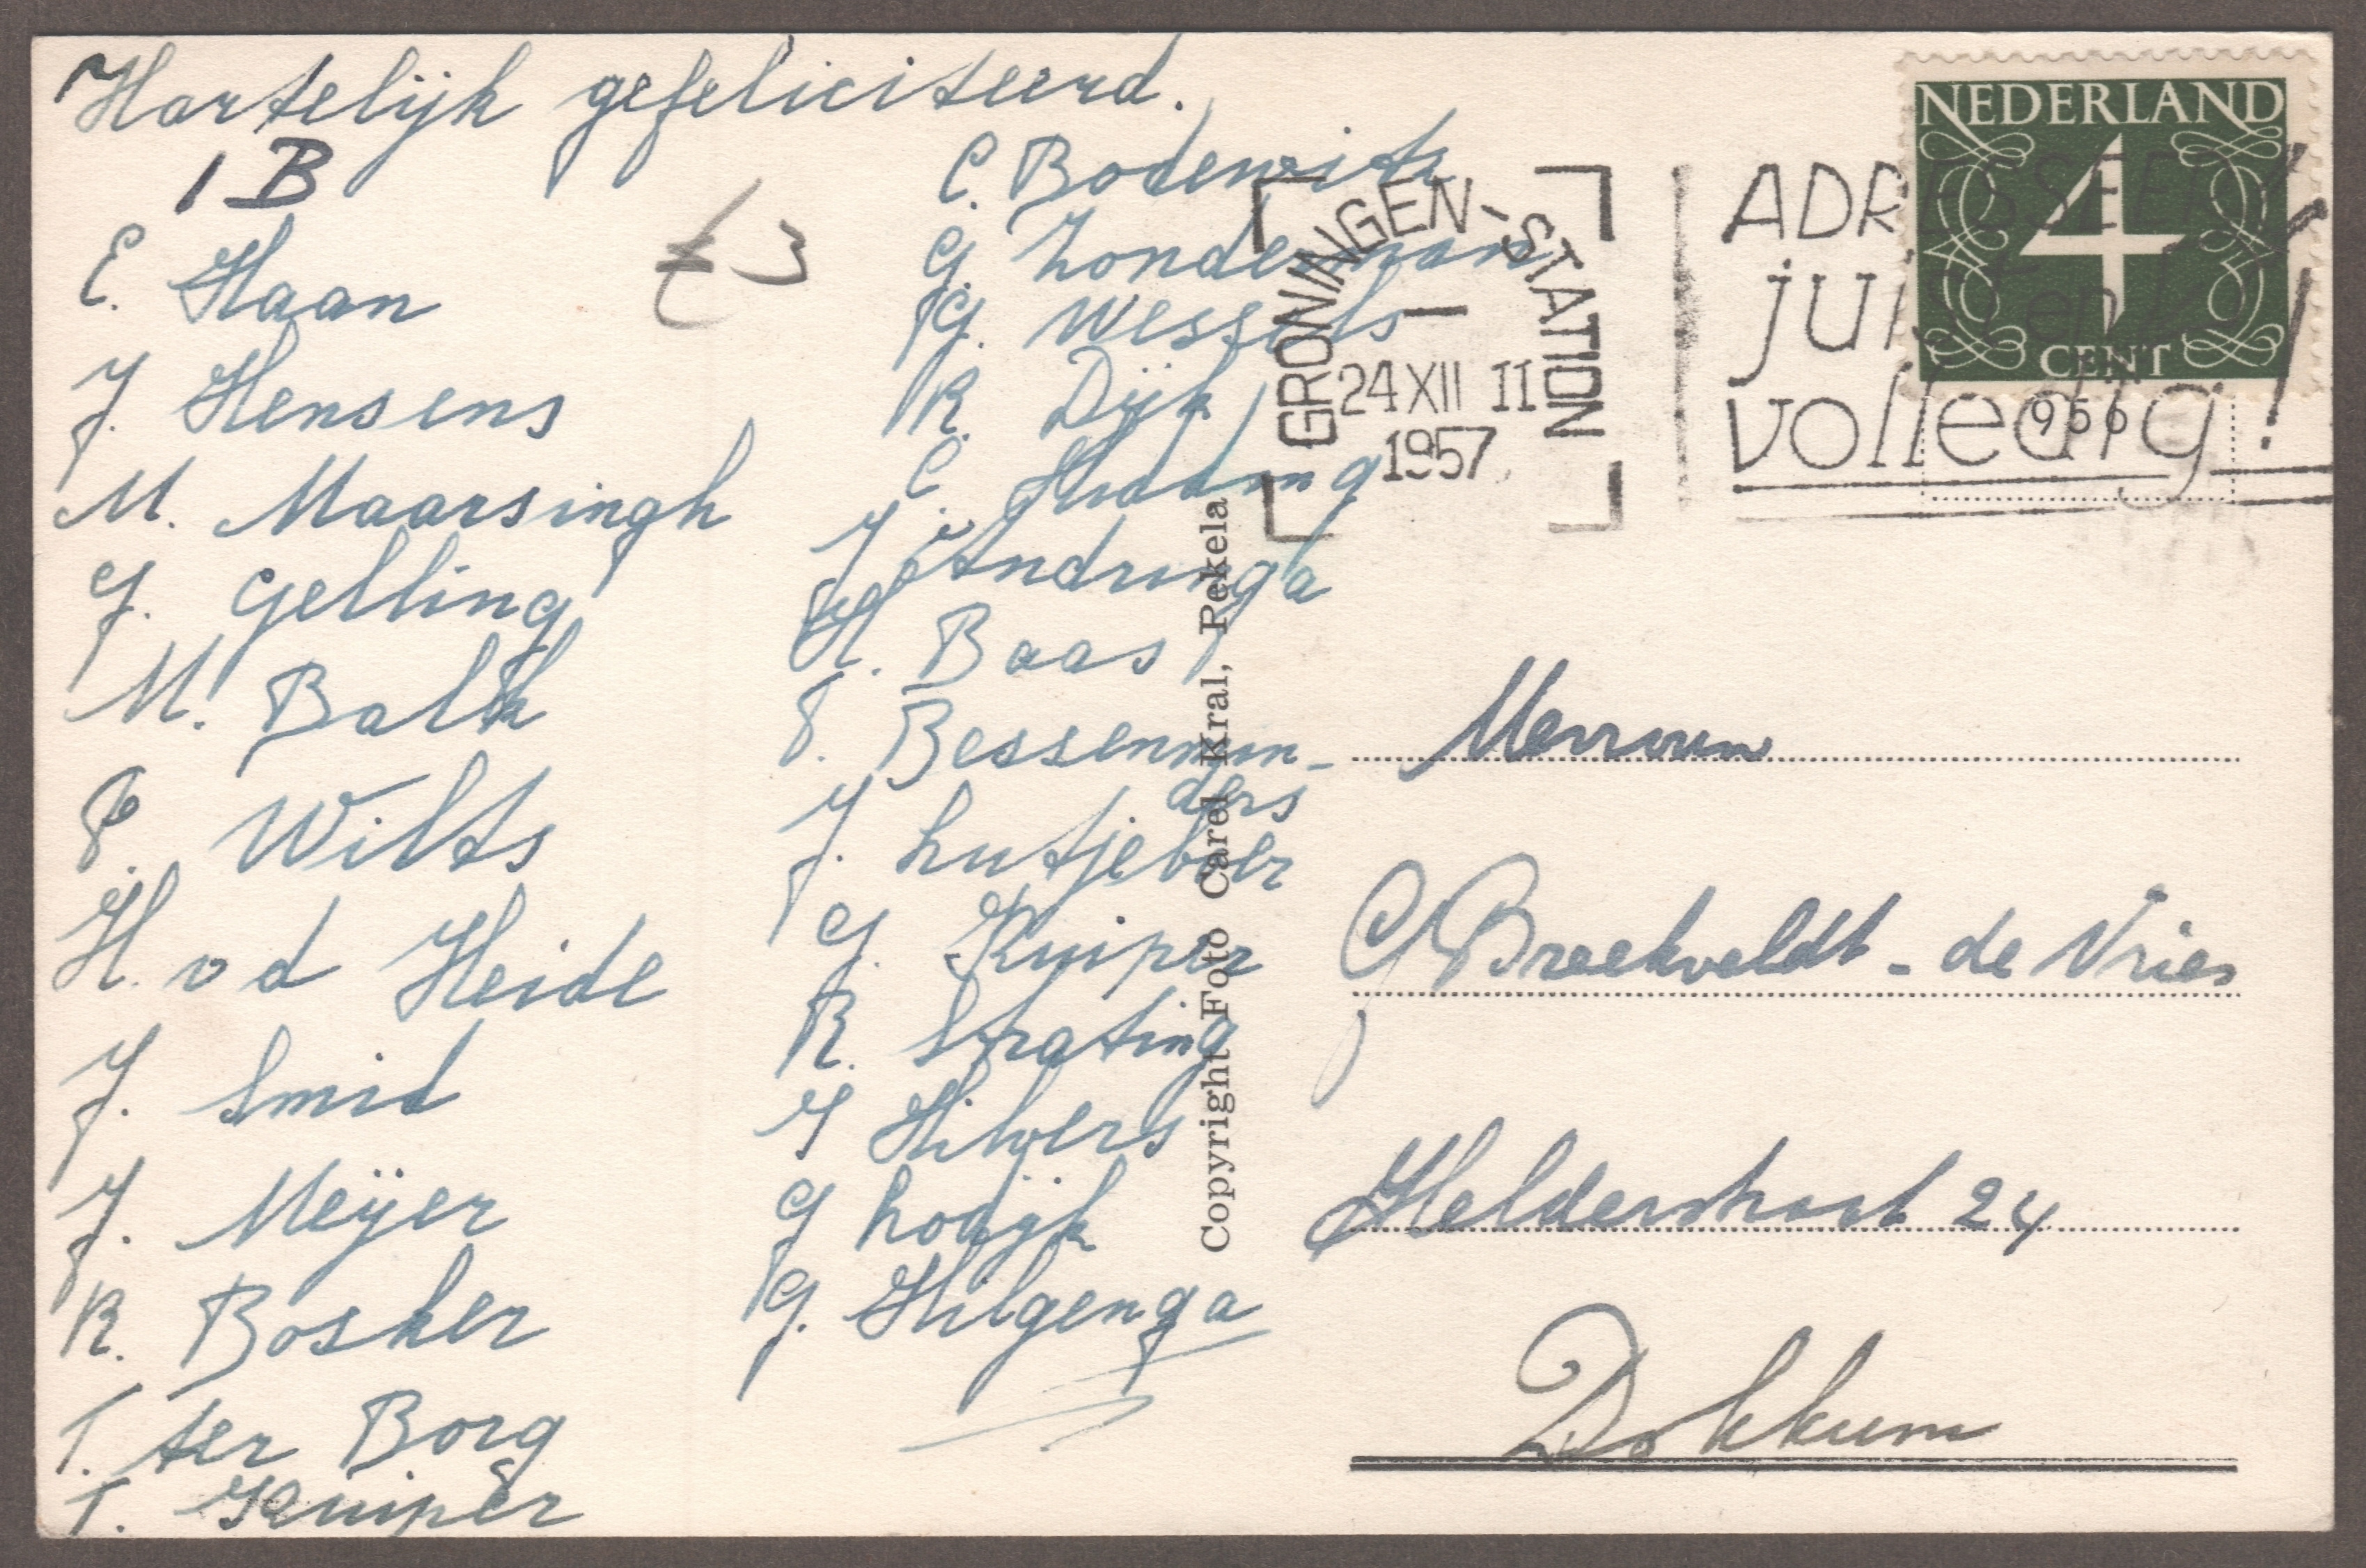 Hartelijk gefeliciteerd.
1 B
E. Haan
J. Hensens
M. Maarsingh
G. Gelling
M. Balk
F. Wilts
H. v d Heide
J. Smid
J. Meijer
R. Bosker
T. ter Borg
T. Kuiper
€3
C. Bodewits
G. Zonderman
G. Wessels
R. Dijk
C. Huding
J. Andringa
H. Baas
F. Bessenmin-
ders
J. Lutjeboer
G. Kuiper
R. Strating
J Hilvers
G Lodijk
G. Hilgenga
Copyright Foto Carel Kral, Pekela
GRONINGEN-STATION
24 XII II
1957
ADRESSEER
juist en
volledig!
NEDERLAND
4
CENT
956
Mevrouw
G Breekveldt - de Vries
Heldershort 24
Dokkum